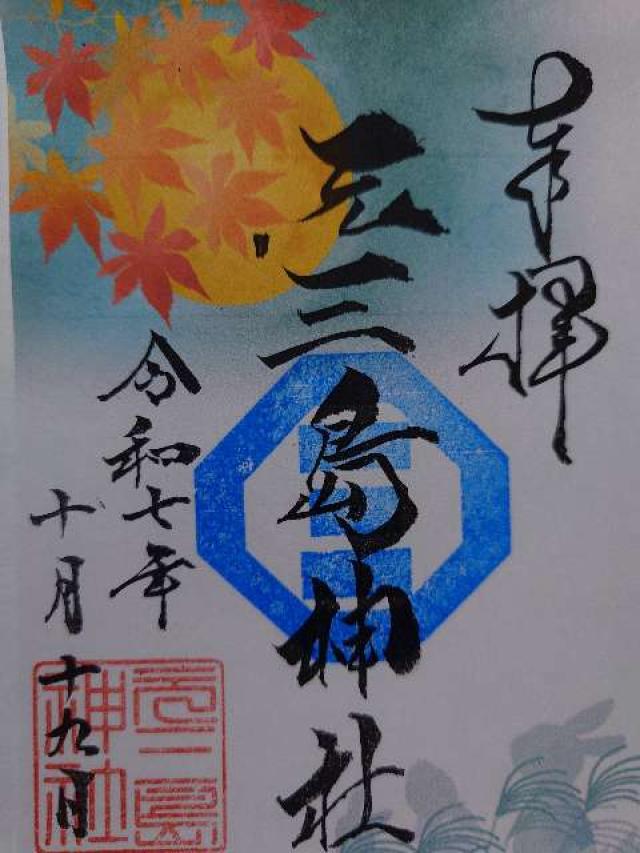 奉拝
元三島神社
令和七年
十月十九日
元三島
神社